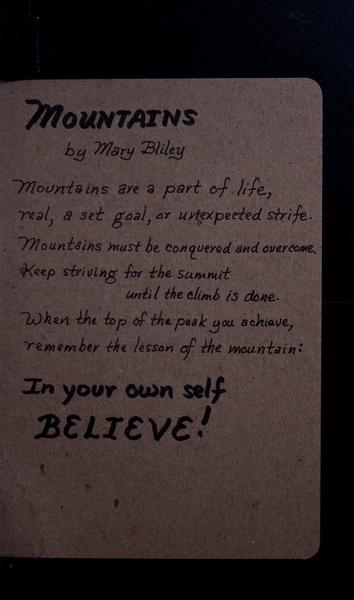 MOUNTAINS
by Mary Bliley
Mountains are a part of life,
real, a set goal, or unexpected strife.
Mountains must be conquered and overcome.
Keep striving for the summit
until the climb is done.
When the top of the peak you achieve,
remember the lesson of the mountain:
In your own self
BELIEVE!